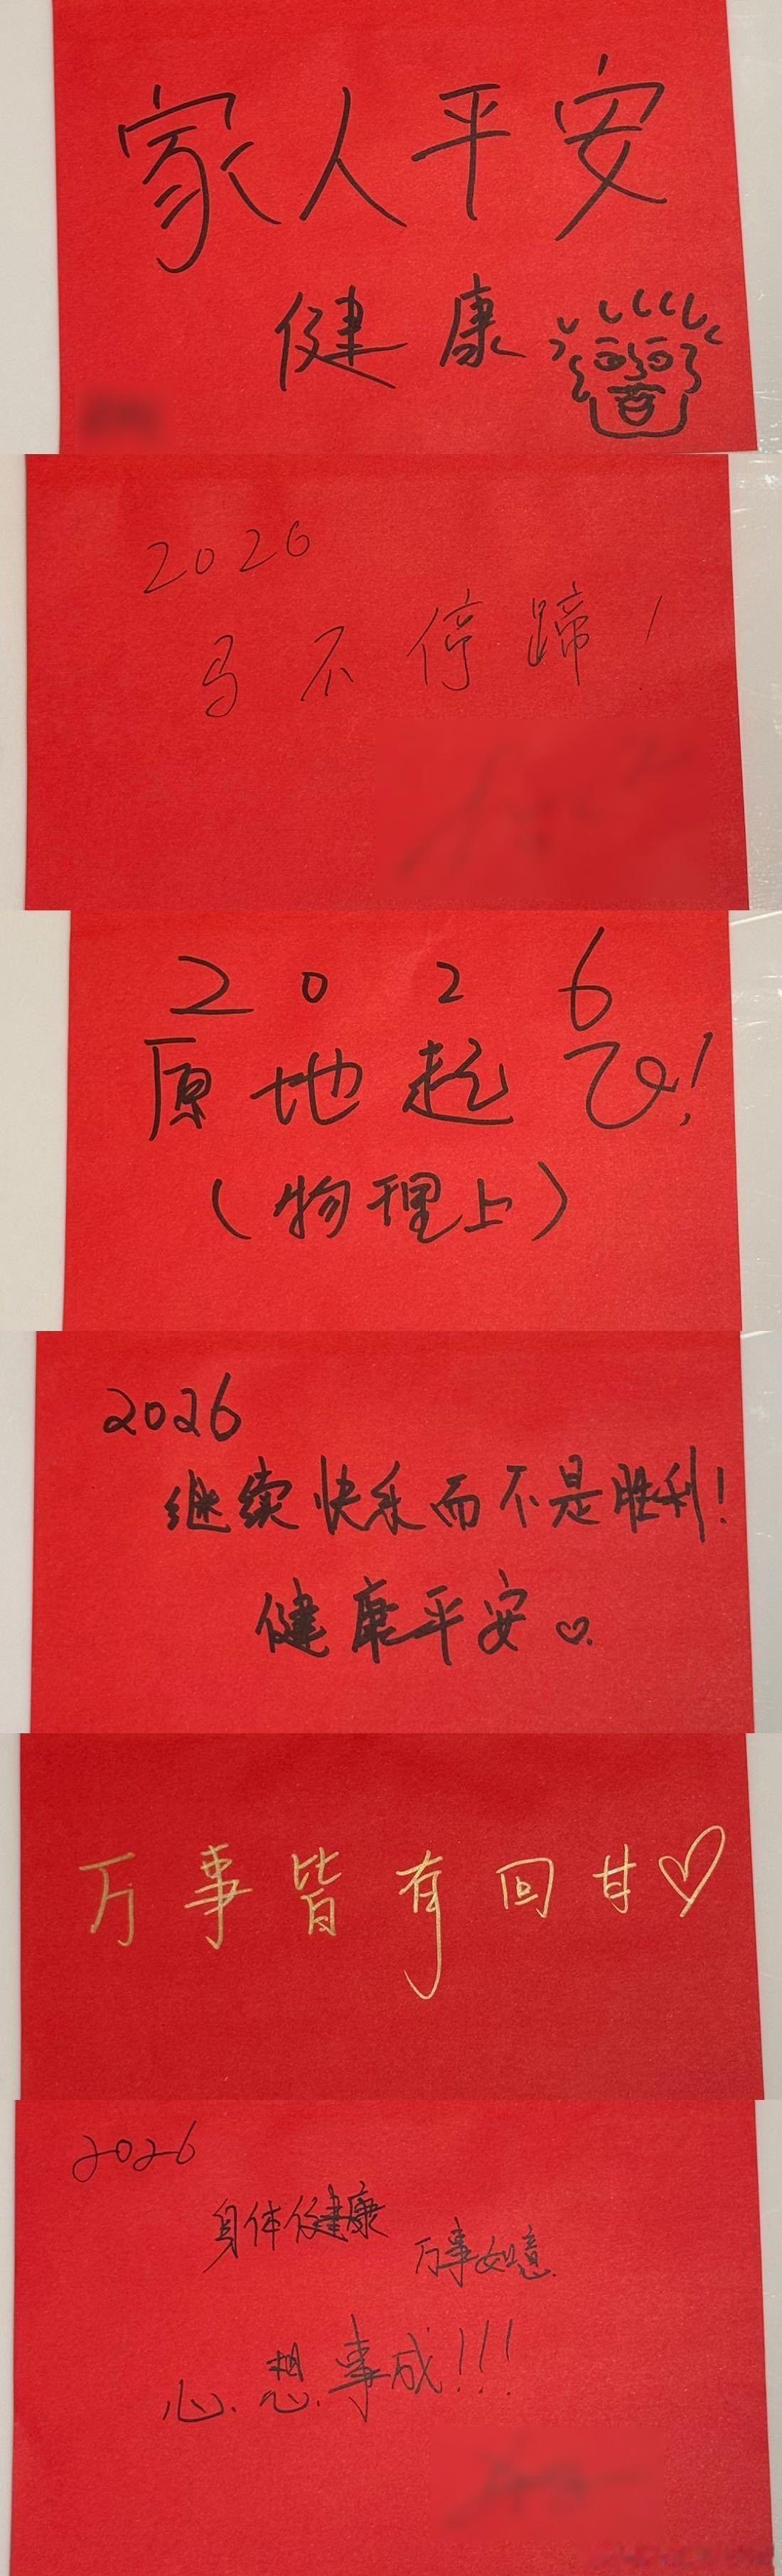 家人平安
健康
2026
马不停蹄！
2026
原地起飞！
（物理上）
2026
继续快乐而不是胜利！
健康平安
万事皆有回甘
2026
身体健康
万事如意
心想事成！！！